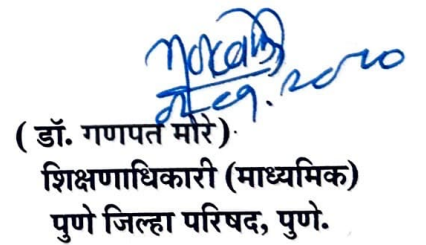 ( डॉ. गणपत मोरे )
शिक्षणाधिकारी (माध्यमिक)
पुणे जिल्हा परिषद, पुणे.